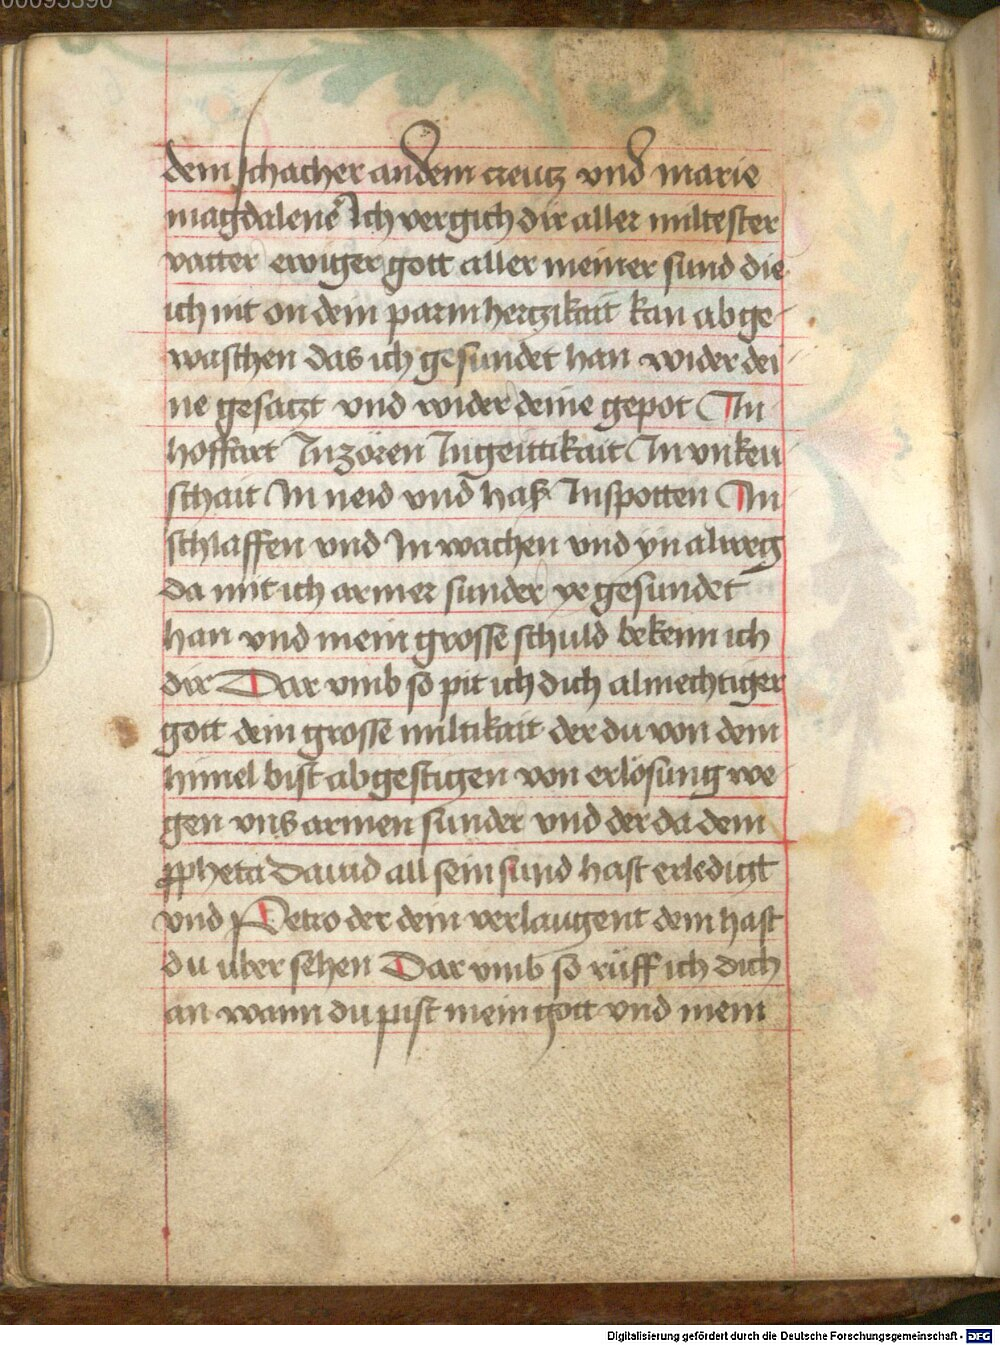 dem schacher an dem creutz und marie
magdalene Ich vergich dir aller miltester
vatter ewiger gott aller meiner sund die
ich nit on dein parmhertzikait kan abge
waschen das ich gesundet han wider dei
ne gesatzt vnd wider deine gepot In
hoffart In zoren In geittikait In vnkeu
schait In neid vnd haß In spotten In
schlaffen vnd In wachen vnd yn alweg
da mit ich armer sunder ye gesundet
han vnd mein grosse schuld bekenn ich
dir Dar vmb so pit ich dich almechtiger
gott dein grosse miltikait der du von dem
himel bist abgestigen von erlosung we
gen vns armen sunder vnd der da dem
ppheta dauid all sein sund hast erledigt
vnd Petro der dein verlaugent dem hast
du uber sehen Dar vmb so rüff ich dich
an wann du pist mein gott vnd mein
Digitalisierung gefördert durch die Deutsche Forschungsgemeinschaft - DFG